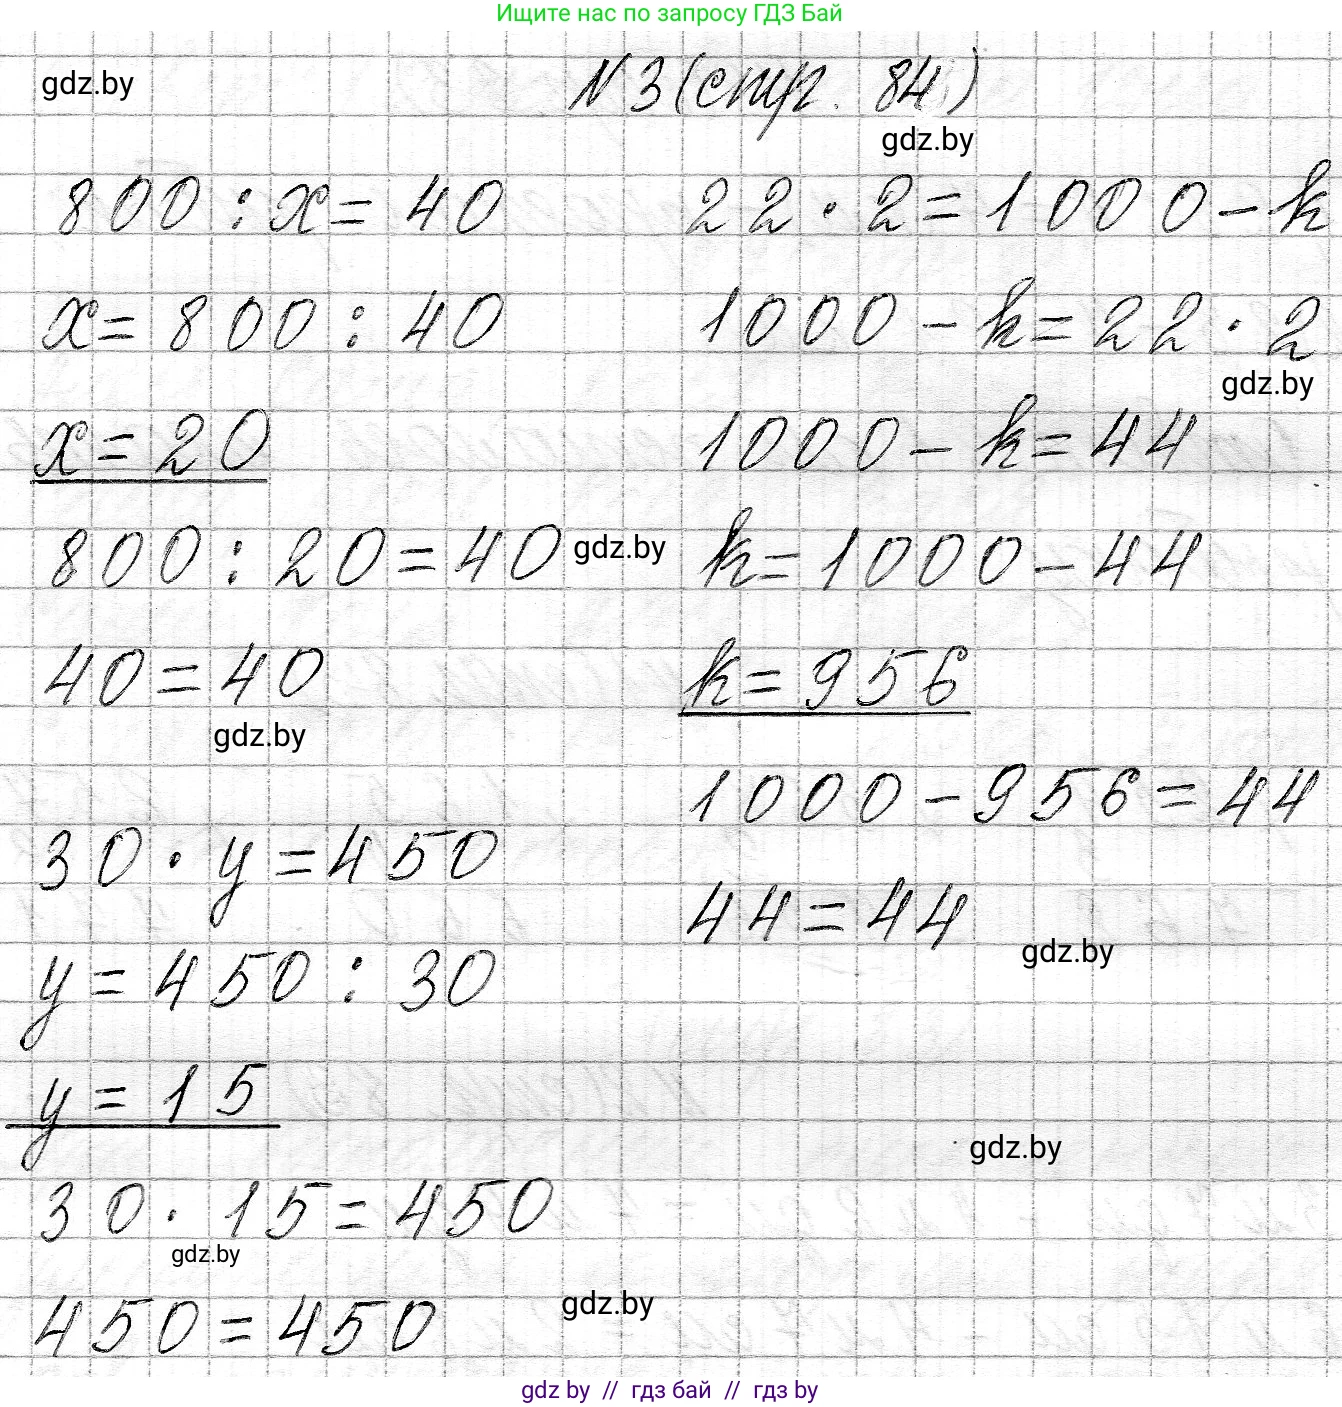 Ищите нас по запросу ГДЗ Бай
gdz.by
N 3 (стр. 84)
gdz.by
800 : x = 40
x = 800 : 40
x = 20
800 : 20 = 40
gdz.by
40 = 40
gdz.by
30 · y = 450
y = 450 : 30
y = 15
30 · 15 = 450
gdz.by
450 = 450
gdz.by
22 · 2 = 1000 - k
1000 - k = 22 · 2
gdz.by
1000 - k = 44
k = 1000 - 44
k = 956
1000 - 956 = 44
44 = 44
gdz.by
gdz.by
gdz by // гдз бай // гдз by